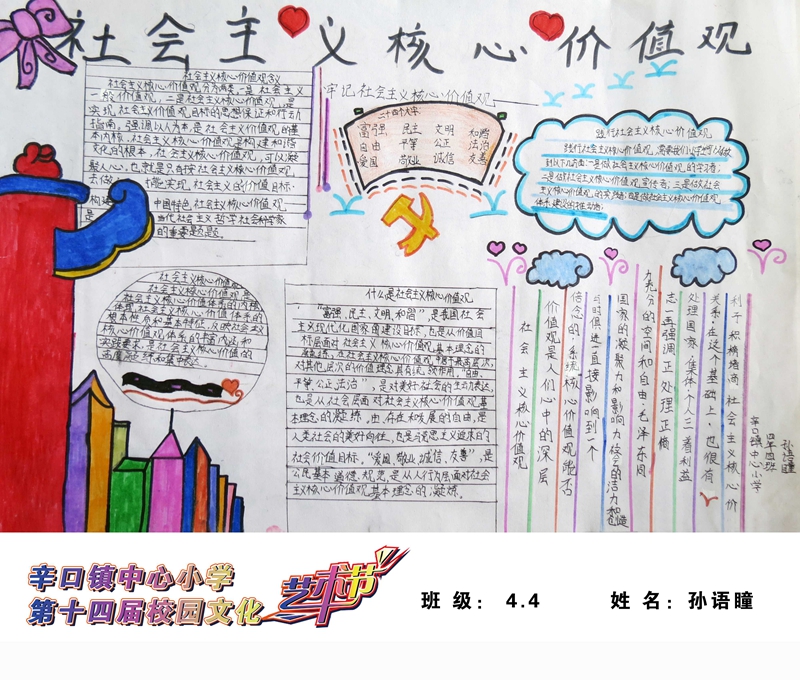 社会主义核心价值观
社会主义核心价值观含义
社会主义核心价值观分为两类,一是社会主义
核心价值观,二是社会主义核心价值观,是
实现社会主义价值目标的思想保证和行动
指南,强调以人为本,是社会主义价值观的基
本内核,社会主义核心价值观是构建和谐
文化的根本,社会主义核心价值观,可以凝
中国特色,社会主义核心
当代社会主义哲学社会科学家
的重要题题.
牢记社会主义核心价值观
二十四个大字
富强 民主 文明 和谐
自由 平等 公正 法治
爱国 敬业 诚信 友善
践行社会主义核心价值观
践行社会主义核心价值观,需要我们从学生到个做
到以下几方面:一是做社会主义核心价值观的学习者;
二是做社会主义核心价值观宣传者;三是做社会
主义核心价值观的实践者;四是做社会主义核心价值观
体系建设的推动者;
社会主义核心价值观
社会主义核心价值观是
社会主义核心价值体系的内核
体现社会主义核心价值体系的
根本性质和基本特征,反映社会主义
核心价值体系的丰富内涵和
实践要求,是社会主义核心价值的
高度凝练和集中表达.
什么是社会主义核心价值观
“富强,民主,文明,和谐”,是我国社会
主义现代化国家的建设目标,也是从价值目
标层面对社会主义核心价值观基本理念的
对其他层次的价值理念具有统领作用,“自由、
平等、公正、法治”,是对美好社会的生动表达,
也是从社会层面对社会主义核心价值观基
本理念的凝练,由,存在和发展的自由,是
人类社会的美好向往,也是马克思主义追求的
社会价值目标。“爱国,敬业,诚信,友善”,是
公民基本道德规范,是从人行为层面对社会
主义核心价值观基本理念的凝练.
社会主义核心价值观
价值观是人们心中的深层
信念的系统,核心价值观能否
与时俱进直接影响到一个
国家的凝聚力和影响力社会的活力和创造
力充分的空间和自由.毛泽东同
志一再强调正处理正确
处理国家、集体、个人三者利益
关系.在这个基础上,也很有
利于积极培商社会主义核心价
辛口镇中心小学
四年四班
孙语瞳
辛口镇中心小学
第十四届校园文化
艺术节
班级: 4.4 姓名:孙语瞳